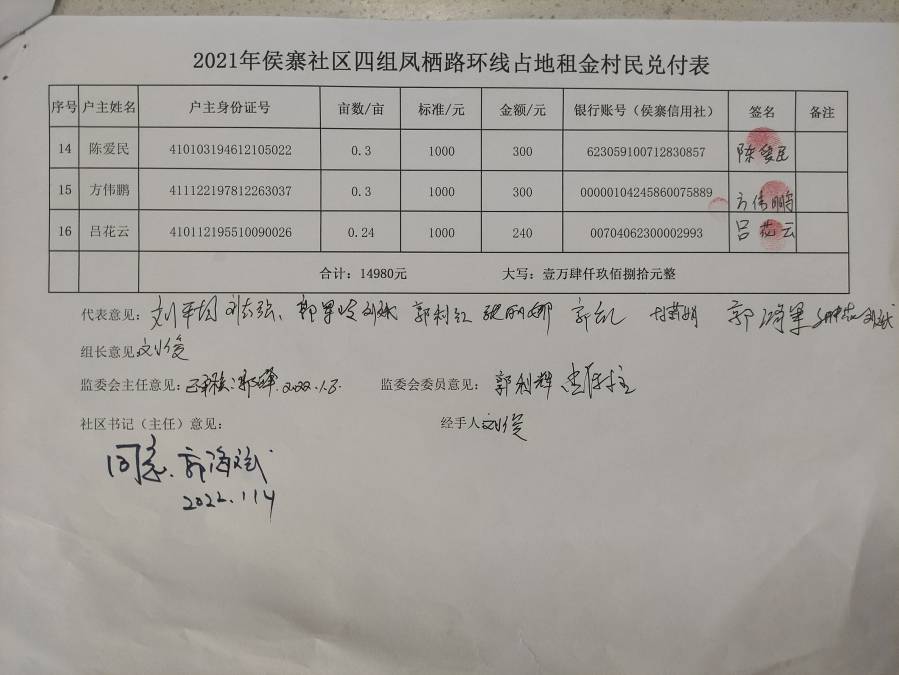 2021年侯寨社区四组凤栖路环线占地租金村民兑付表
序号 户主姓名 户主身份证号 亩数/亩 标准/元 金额/元 银行账号（侯寨信用社） 签名 备注
14 陈爱民 410103194612105022 0.3 1000 300 623059100712830857 陈爱民
15 方伟鹏 411122197812263037 0.3 1000 300 00000104245860075889 方伟鹏
16 吕花云 410112195510090026 0.24 1000 240 00704062300002993 吕花云
合计：14980元 大写：壹万肆仟玖佰捌拾元整
代表意见： 郭利红 张丽娜
组长意见 刘俊
监委会主任意见： 2022.1.3. 监委会委员意见： 郭利辉
社区书记（主任）意见： 经手人 刘俊
同意. 郭海斌
2022.1.14